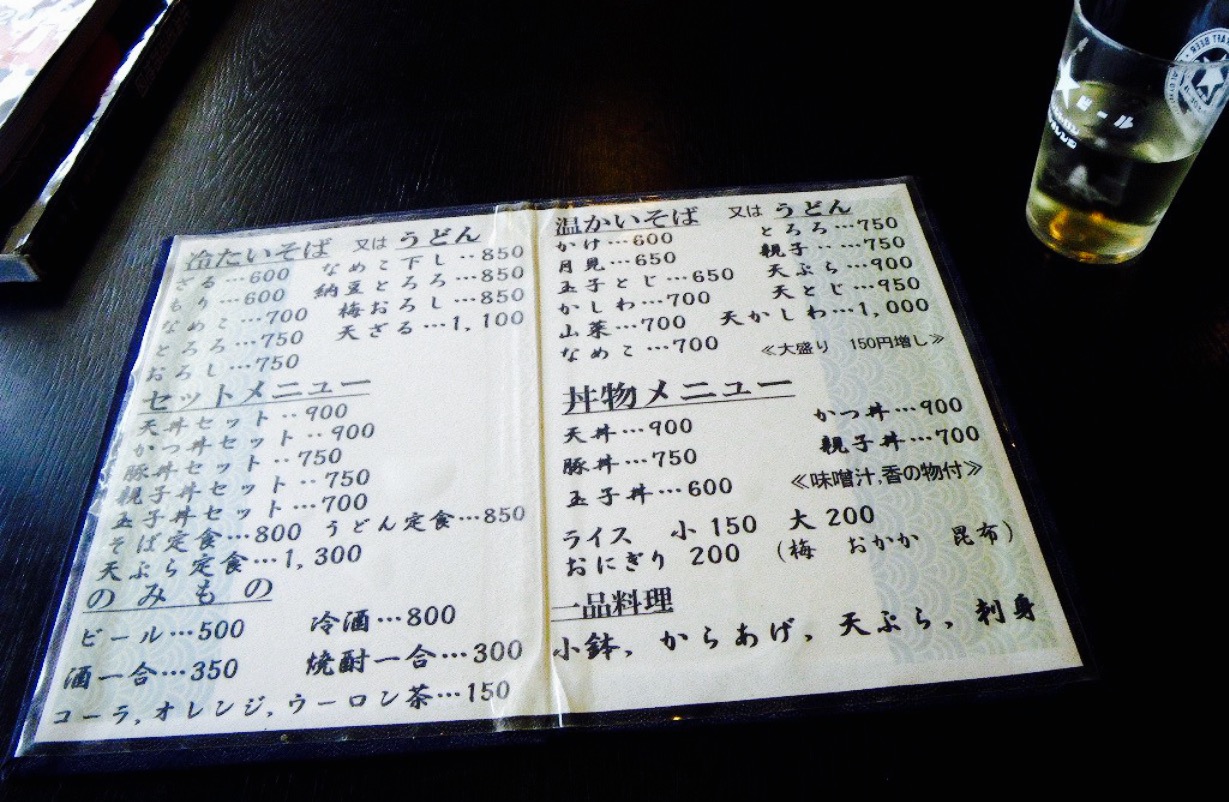 冷たいそば 又は うどん
ざる…600
もり…600
なめこ…700
とろろ…750
おろし…750
なめこ下し‥850
納豆とろろ…850
梅おろし…850
天ざる…1,100
セットメニュー
天丼セット‥900
かつ丼セット‥900
豚丼セット‥750
親子丼セット‥750
玉子丼セット…700
そば定食…800 うどん定食…850
天ぷら定食…1,300
のみもの
ビール…500 冷酒…800
酒一合…350 焼酎一合…300
コーラ,オレンジ,ウーロン茶…150
温かいそば 又は うどん
かけ…600
月見…650
玉子とじ…650
かしわ…700
山菜…700
なめこ…700
とろろ…750
親子‥…750
天ぷら…900
天とじ…950
天かしわ…1,000
≪大盛り 150円増し≫
丼物メニュー
天丼…900 かつ丼…900
豚丼…750 親子丼…700
玉子丼…600 ≪味噌汁,香の物付≫
ライス 小 150 大 200
おにぎり 200 (梅 おかか 昆布)
一品料理
小鉢, からあげ, 天ぷら, 刺身
ビール